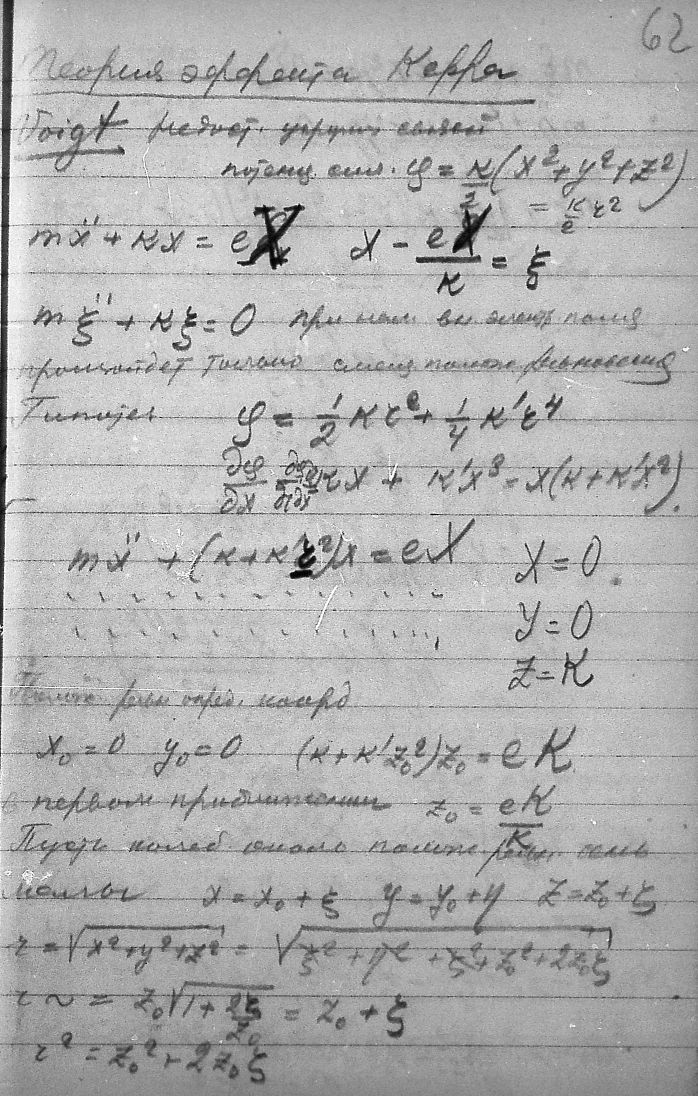 62
Теория эффекта Керра
Voigt недост. упругих связей
потенц. сил. φ = k/2 (x² + y² + z²)
= k/2 r²
mẍ + kx = eX   x − eX/k = ξ
mξ̈ + kξ = 0 при нал. вн электр поля
произойдет только смещ полож равновесия
Гипотеза φ = 1/2 kr² + 1/4 k'r⁴
∂φ/∂x kx + k'x³ = x(k + k'x²)
mẍ + (k + k r²)x = eX   X = 0
Y = 0
Z = K
Полож равн опред. коорд
x₀ = 0   y₀ = 0   (k + k'z₀²)z₀ = eK
в первом приближении z₀ = eK/k
Пусть колеб около полож равн
малы x = x₀ + ξ   y = y₀ + η   z = z₀ + ζ
r = √(x² + y² + z²) = √(ξ² + η² + ζ² + z₀² + 2z₀ζ)
r ~ = z₀√(1 + 2ζ/z₀) = z₀ + ζ
r² = z₀² + 2z₀ζ